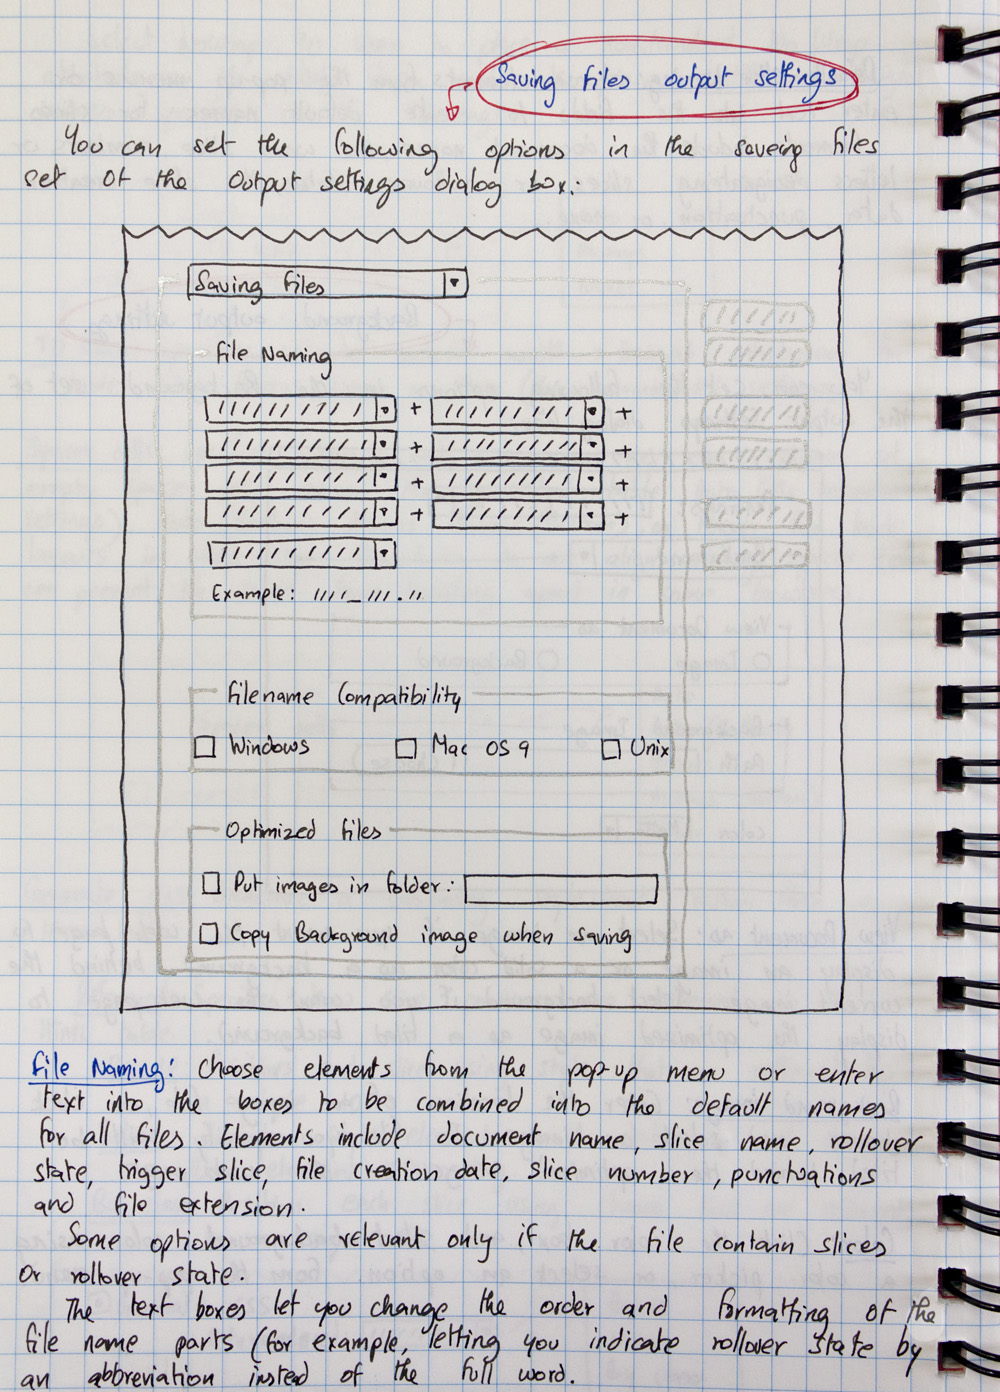 Saving files output settings
You can set the following options in the saveing files
set of the Output settings dialog box:
Saving files
File Naming
+ +
+ +
+ +
+ +
Example:
filename Compatibility
Windows Mac OS 9 Unix
Optimized files
Put images in folder:
Copy Background image when saving
File Naming: Choose elements from the pop-up menu or enter
text into the boxes to be combined into the default names
for all files. Elements include document name, slice name, rollover
state, trigger slice, file creation date, slice number, punctuations
and file extension.
Some options are relevant only if the file contain slices
Or rollover state.
The text boxes let you change the order and formatting of the
file name parts (for example, letting you indicate rollover state by
an abbreviation instead of the full word.